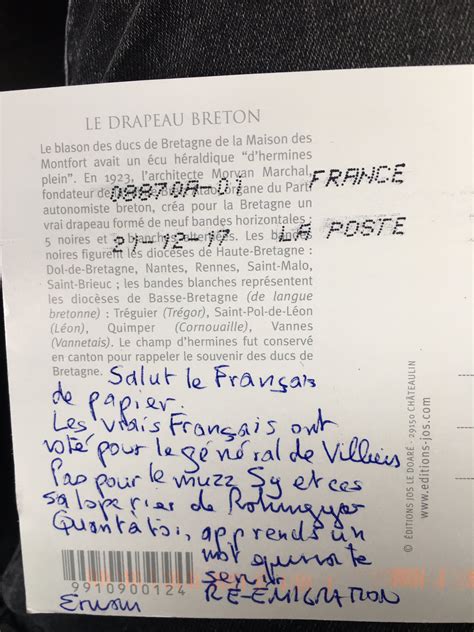 LE DRAPEAU BRETON
Le blason des ducs de Bretagne de la Maison des
Montfort avait un écu héraldique "d'hermines
plein". En 1923, l'architecte Morvan Marchal,
fondateur de
organe du Parti
autonomiste breton, créa pour la Bretagne un
vrai drapeau formé de neuf bandes horizontales :
5 noires et 4 blanches alternées. Les bandes
noires figurent les diocèses de Haute-Bretagne :
Dol-de-Bretagne, Nantes, Rennes, Saint-Malo,
Saint-Brieuc ; les bandes blanches représentent
les diocèses de Basse-Bretagne (de langue
bretonne) : Tréguier (Trégor), Saint-Pol-de-Léon
(Léon), Quimper (Cornouaille), Vannes
(Vannetais). Le champ d'hermines fut conservé
en canton pour rappeler le souvenir des ducs de
Bretagne.
08870A-01 FRANCE
21-12-17 LA POSTE
Salut le Français
de papier.
Les vrais Français ont
voté pour le général de Villiers
Pas pour le muzz Sy et ces
de Rohingyas
Quant à toi, apprends un
mot qui va te
servir
RE-EMIGRATION
9910900124
© ÉDITIONS JOS LE DOARÉ - 29150 CHÂTEAULIN
www.editions-jos.com